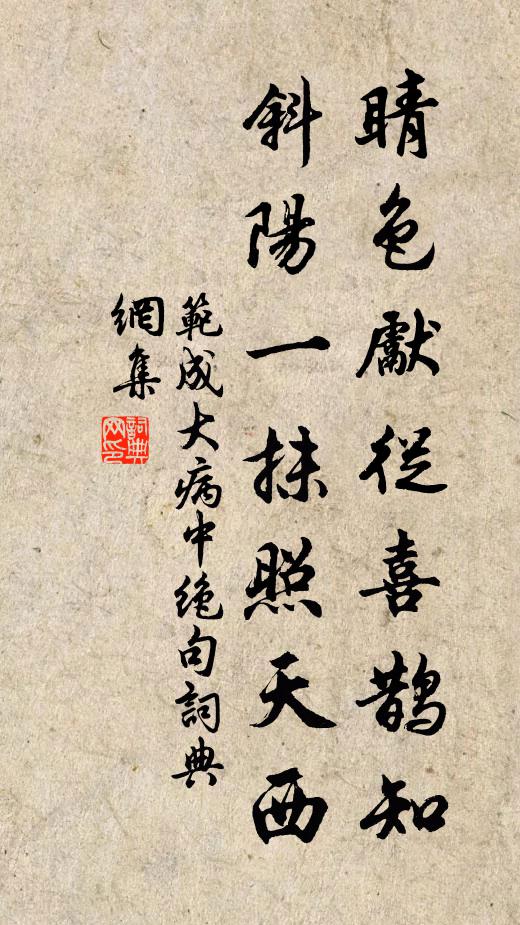 睛色獻從喜鵲知
斜陽一抹照天西
範成大病中绝句詞典
網集
詞典
网印